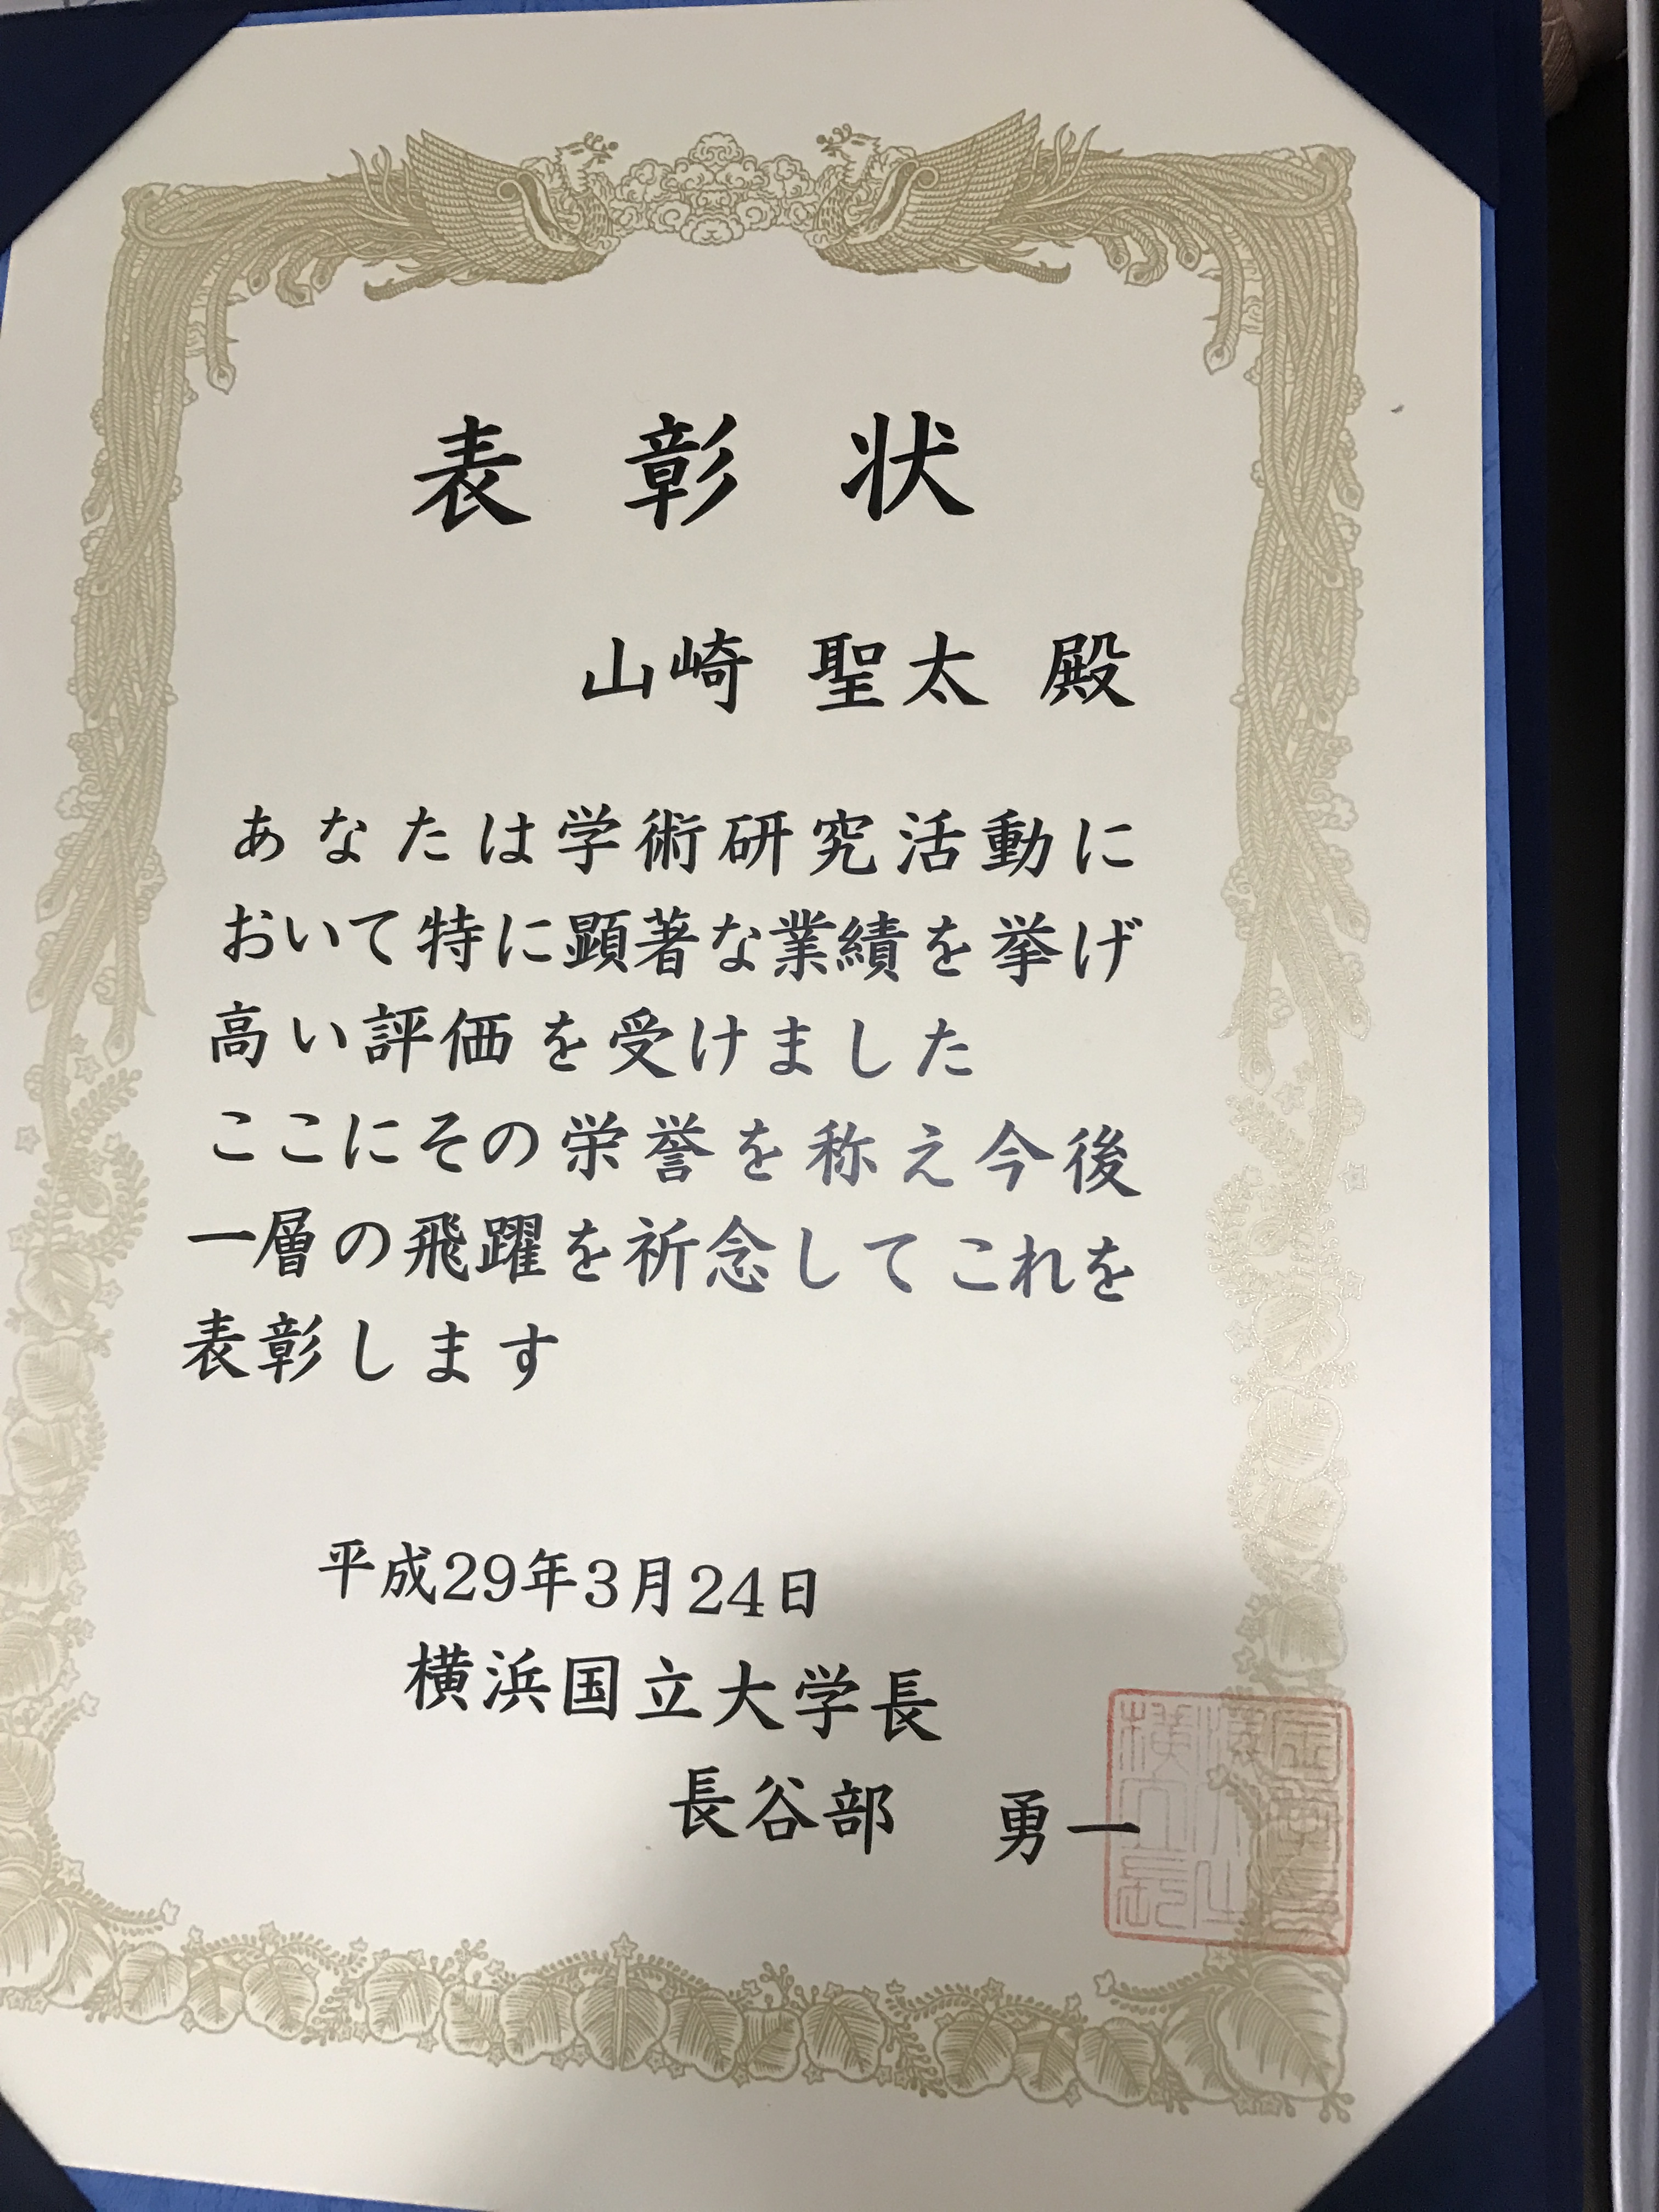 表彰状
山崎 聖太 殿
あなたは学術研究活動に
おいて特に顕著な業績を挙げ
高い評価を受けました
ここにその栄誉を称え今後
一層の飛躍を祈念してこれを
表彰します
平成29年3月24日
横浜国立大学長
長谷部 勇一